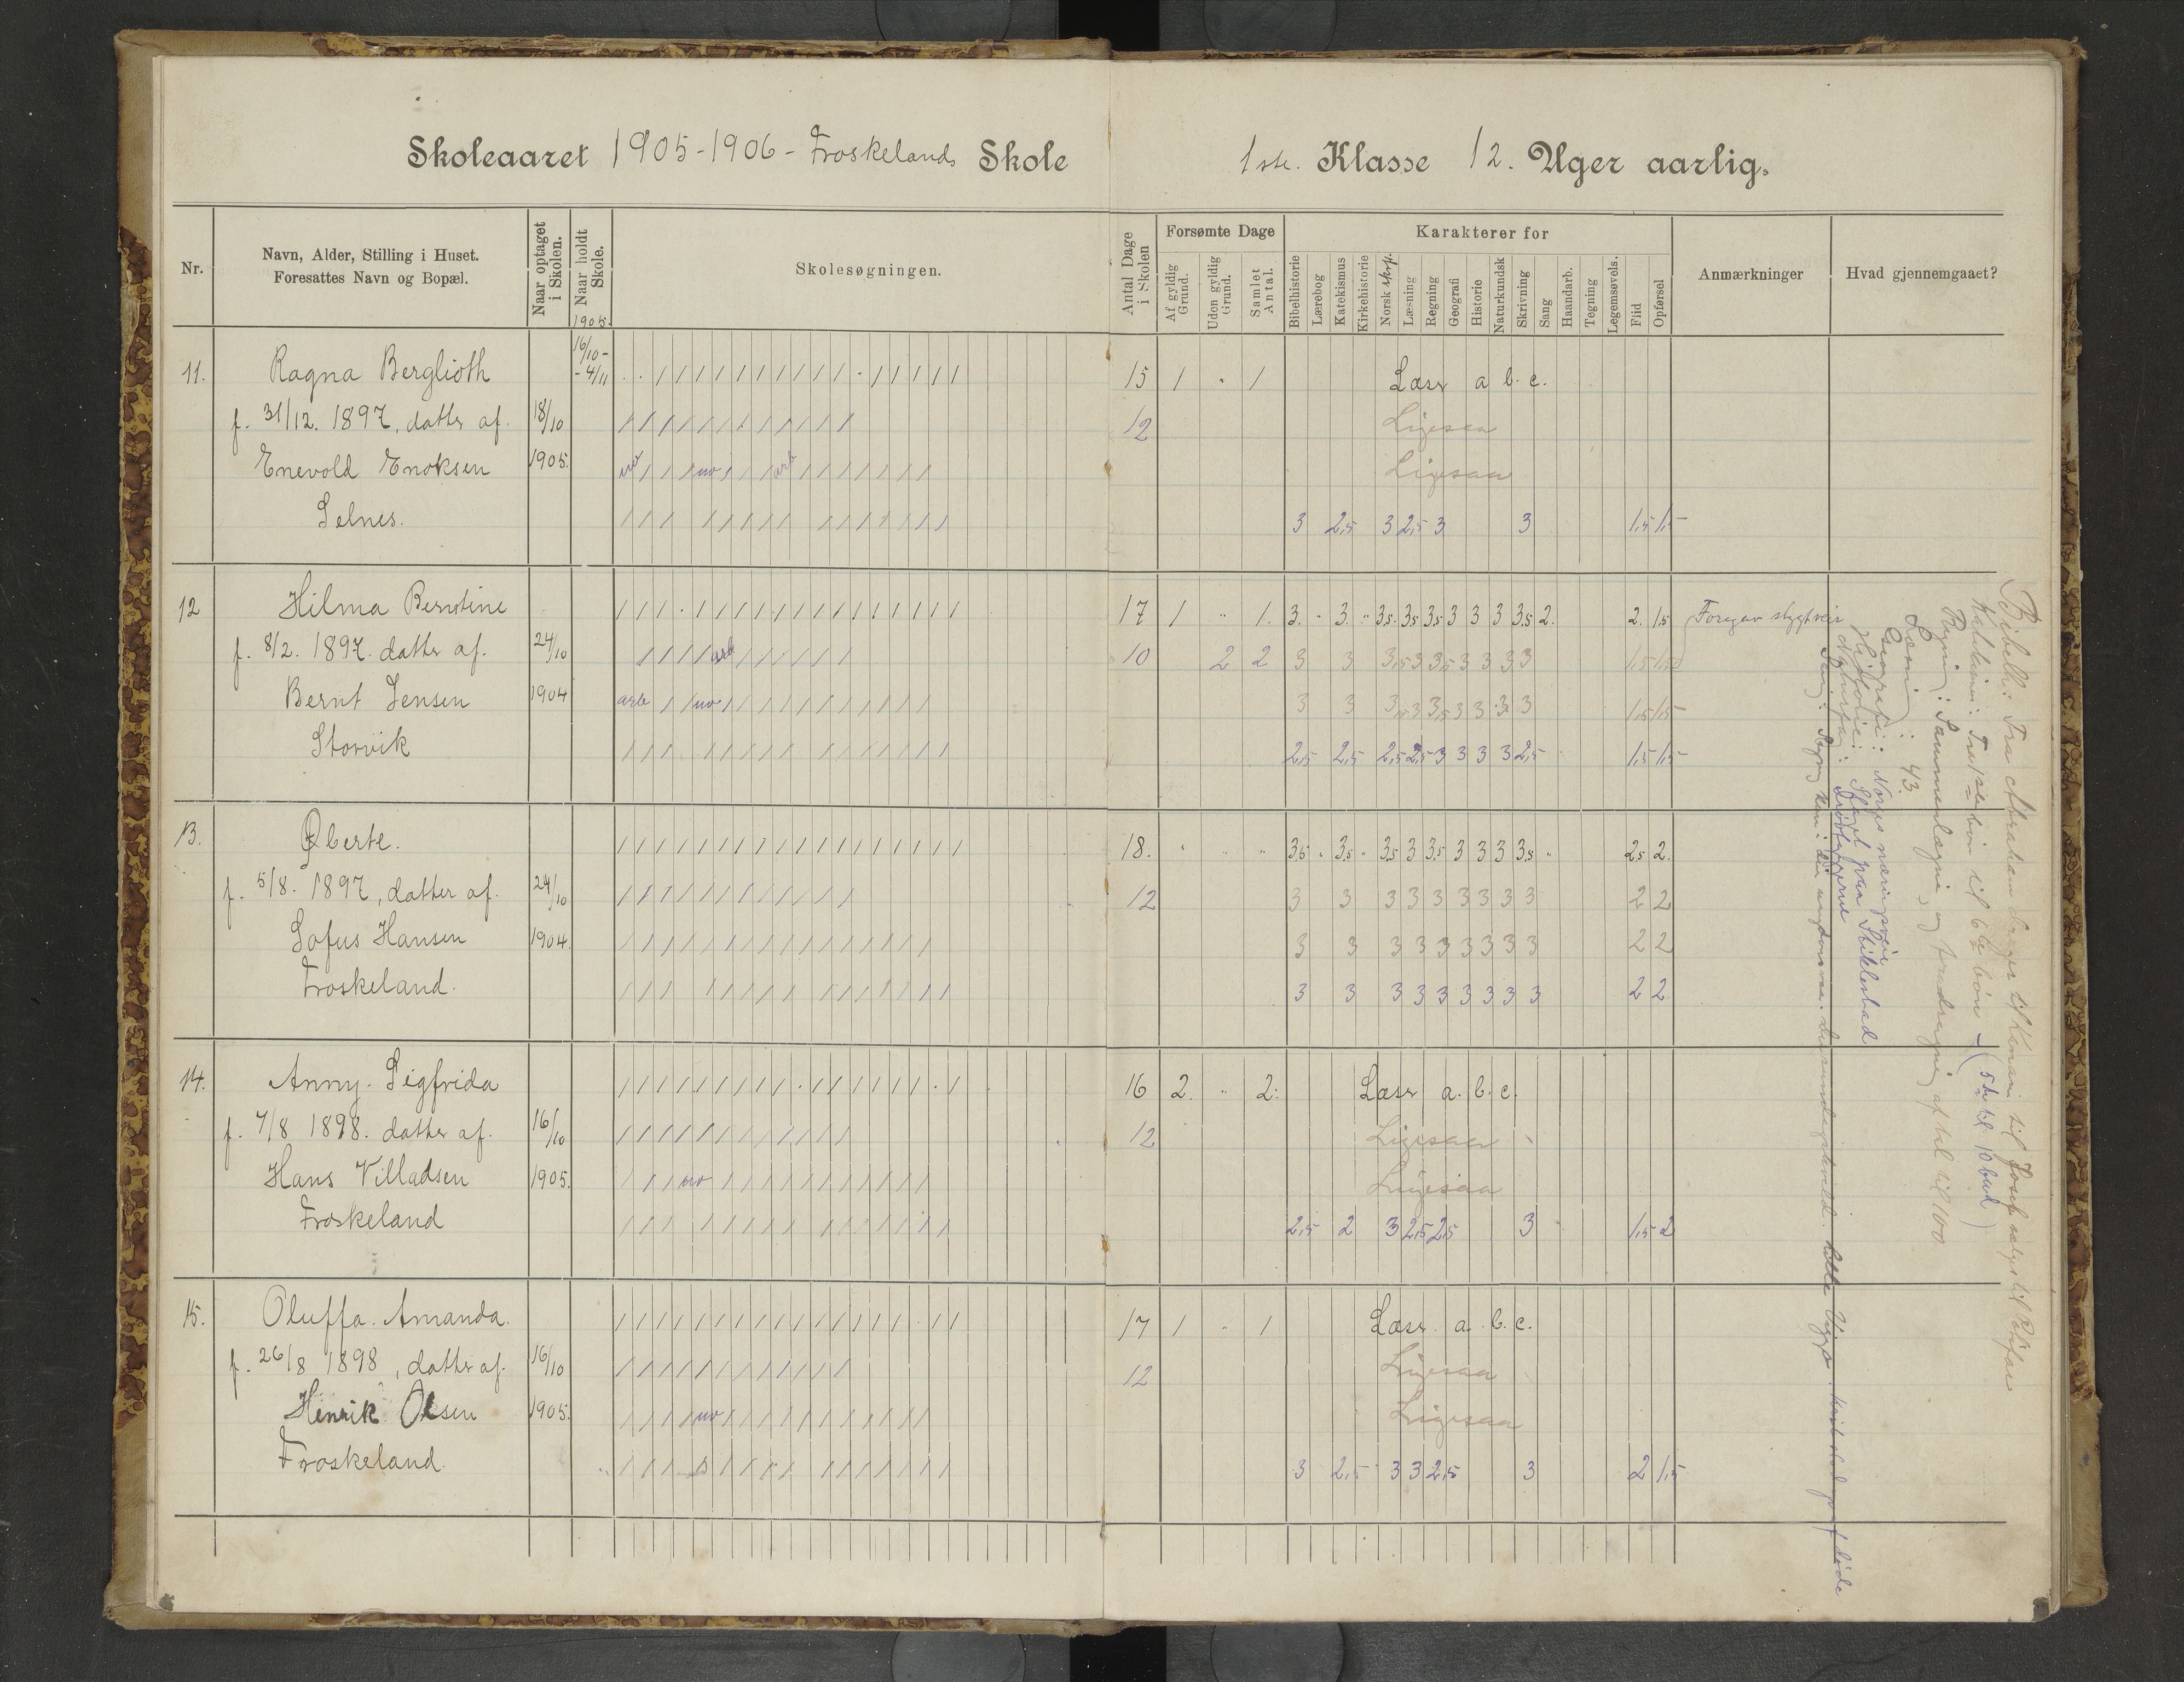 Skoleaaret 1905-1906 - Froskelands Skole
1ste. Klasse 12. Uger aarlig.
Nr.
Navn, Alder, Stilling i Huset.
Foresattes Navn og Bopæl.
Naar optaget i Skolen.
Naar holdt Skole.
1905.
Skolesøgningen.
Antal Dage i Skolen
Forsømte Dage
Af gyldig Grund.
Uden gyldig Grund.
Samlet Antal.
Karakterer for
Bibelhistorie
Lærebog
Katekismus
Kirkehistorie
Norsk skrf.
Læsning
Regning
Geografi
Historie
Naturkundsk
Skrivning
Sang
Haandarb.
Tegning
Legemsøvels.
Flid
Opførsel
Anmærkninger
Hvad gjennemgaaet?
16/10 -
11. Ragna Berglioth - 4/11 15 1 " 1 Læser a b. c.
f. 31/12. 1897, datter af. 18/10 12 Ligesaa
Enevold Enoksen 1905. Ligesaa
Selnes. 3 2,5 3 2,5 3 3 1,5 1,5
12 Hilma Berntine 17 1 " 1. 3. " 3. " 3,5. 3,5 3,5 3 3 3 3,5 2. 2. 1,5 Foregav stygt veir
f. 8/2. 1897. datter af. 24/10 10 2 2 3 3 3,5 3 3,5 3 3 3 3 1,5 1,5
Bernt Jensen 1904 3 3 3,5 3 3,5 3 3 3 3 1,5 1,5
Storvik 2,5 2,5 2,5 2,5 3 3 3 3 2,5 1,5 1,5
13. Øberte. 18. " " " 3,5 " 3,5 " 3,5 3 3,5 3 3 3 3,5 " 2,5 2.
f. 5/8. 1897, datter af. 24/10 12 3 3 3 3 3 3 3 3 3 2 2
Sofus Hansen 1904. 3 3 3 3 3 3 3 3 3 2 2
Froskeland. 3 3 3 3 3 3 3 3 3 2 2
14. Anny. Sigfrida 16 2. " 2. Læser a. b. c.
f. 7/8 1898. datter af. 16/10 12 Ligesaa
Hans Villadsen 1905. Ligesaa
Froskeland 2,5 2 3 2,5 2,5 3 1,5 2
15. Oluffa. Amanda. 17 1 " 1 Læser. a. b. c.
f. 26/8 1898, datter af. 16/10 12 Ligesaa
Henrik Olsen 1905. Ligesaa
Froskeland. 3 2,5 3 3 2,5 3 2 1,5
Bibelh: Fra Abraham til Josef
til 6te bön - (5te til 10 bud)
Regning: Sammenlægning og fradragning af tal til 100
Læsning: 43
Geografi: Norges næringsveie
Historie: Slaget paa Stiklestad
Naturfag:
Sang: